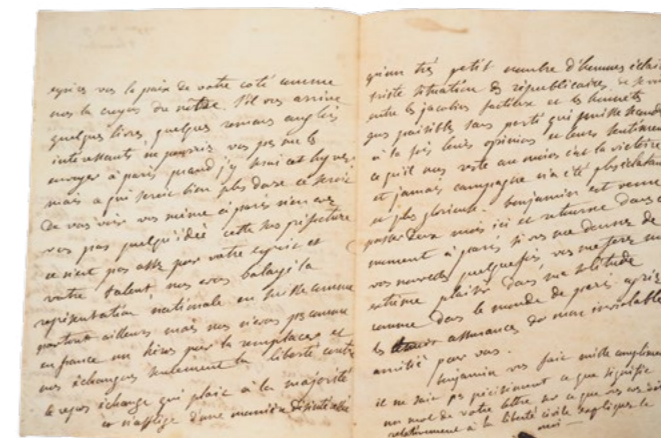 espérés vous la paix de votre coté comme
nous la croyons du notre. S'il vous arrive
quelques livres quelques romans anglais
intéressants ne pourriés vous pas me les
envoyer à paris quand j'y serai cet hyver
mais a qui seroit bien plus doux ce seroit
de vous voir vous même à paris n'en avés
vous pas quelqu'idée cette sous préfecture
ce n'est pas assés pour votre esprit et
votre talent. nous avons balayé la
représentation nationale en suisse comme
partout ailleurs mais nous n'avons pas comme
en france un héros pour la remplacer et
nous échangeons seulement la liberté contre
le repos échange qui plait à la majorité
et n'afflige d'une manière désintéressée
qu'un très petit nombre d'hommes éclairés
triste situation des républicaires de
entre les jacobins factieux et les honnêtes
gens paisibles sans parti qui puisse
à la fois leurs opinions et leurs sentiments
ce qu'il nous reste au moins c'est la victoire
et jamais campagne n'a été plus éclatante
et plus glorieuse. benjamin est venu
passer deux mois ici et retourne dans
moment à paris si vous me donnés de
vos nouvelles quelquefois vous me ferez un
extrême plaisir dans ma solitude
comme dans le monde de paris. agréez
les assurances de mon inviolable
amitié pour vous.
benjamin vous fait mille compliments
il ne sait pas précisément ce que signifie
un mot de votre lettre sur ce que vous
relativement à la liberté civile expliqués le
moi